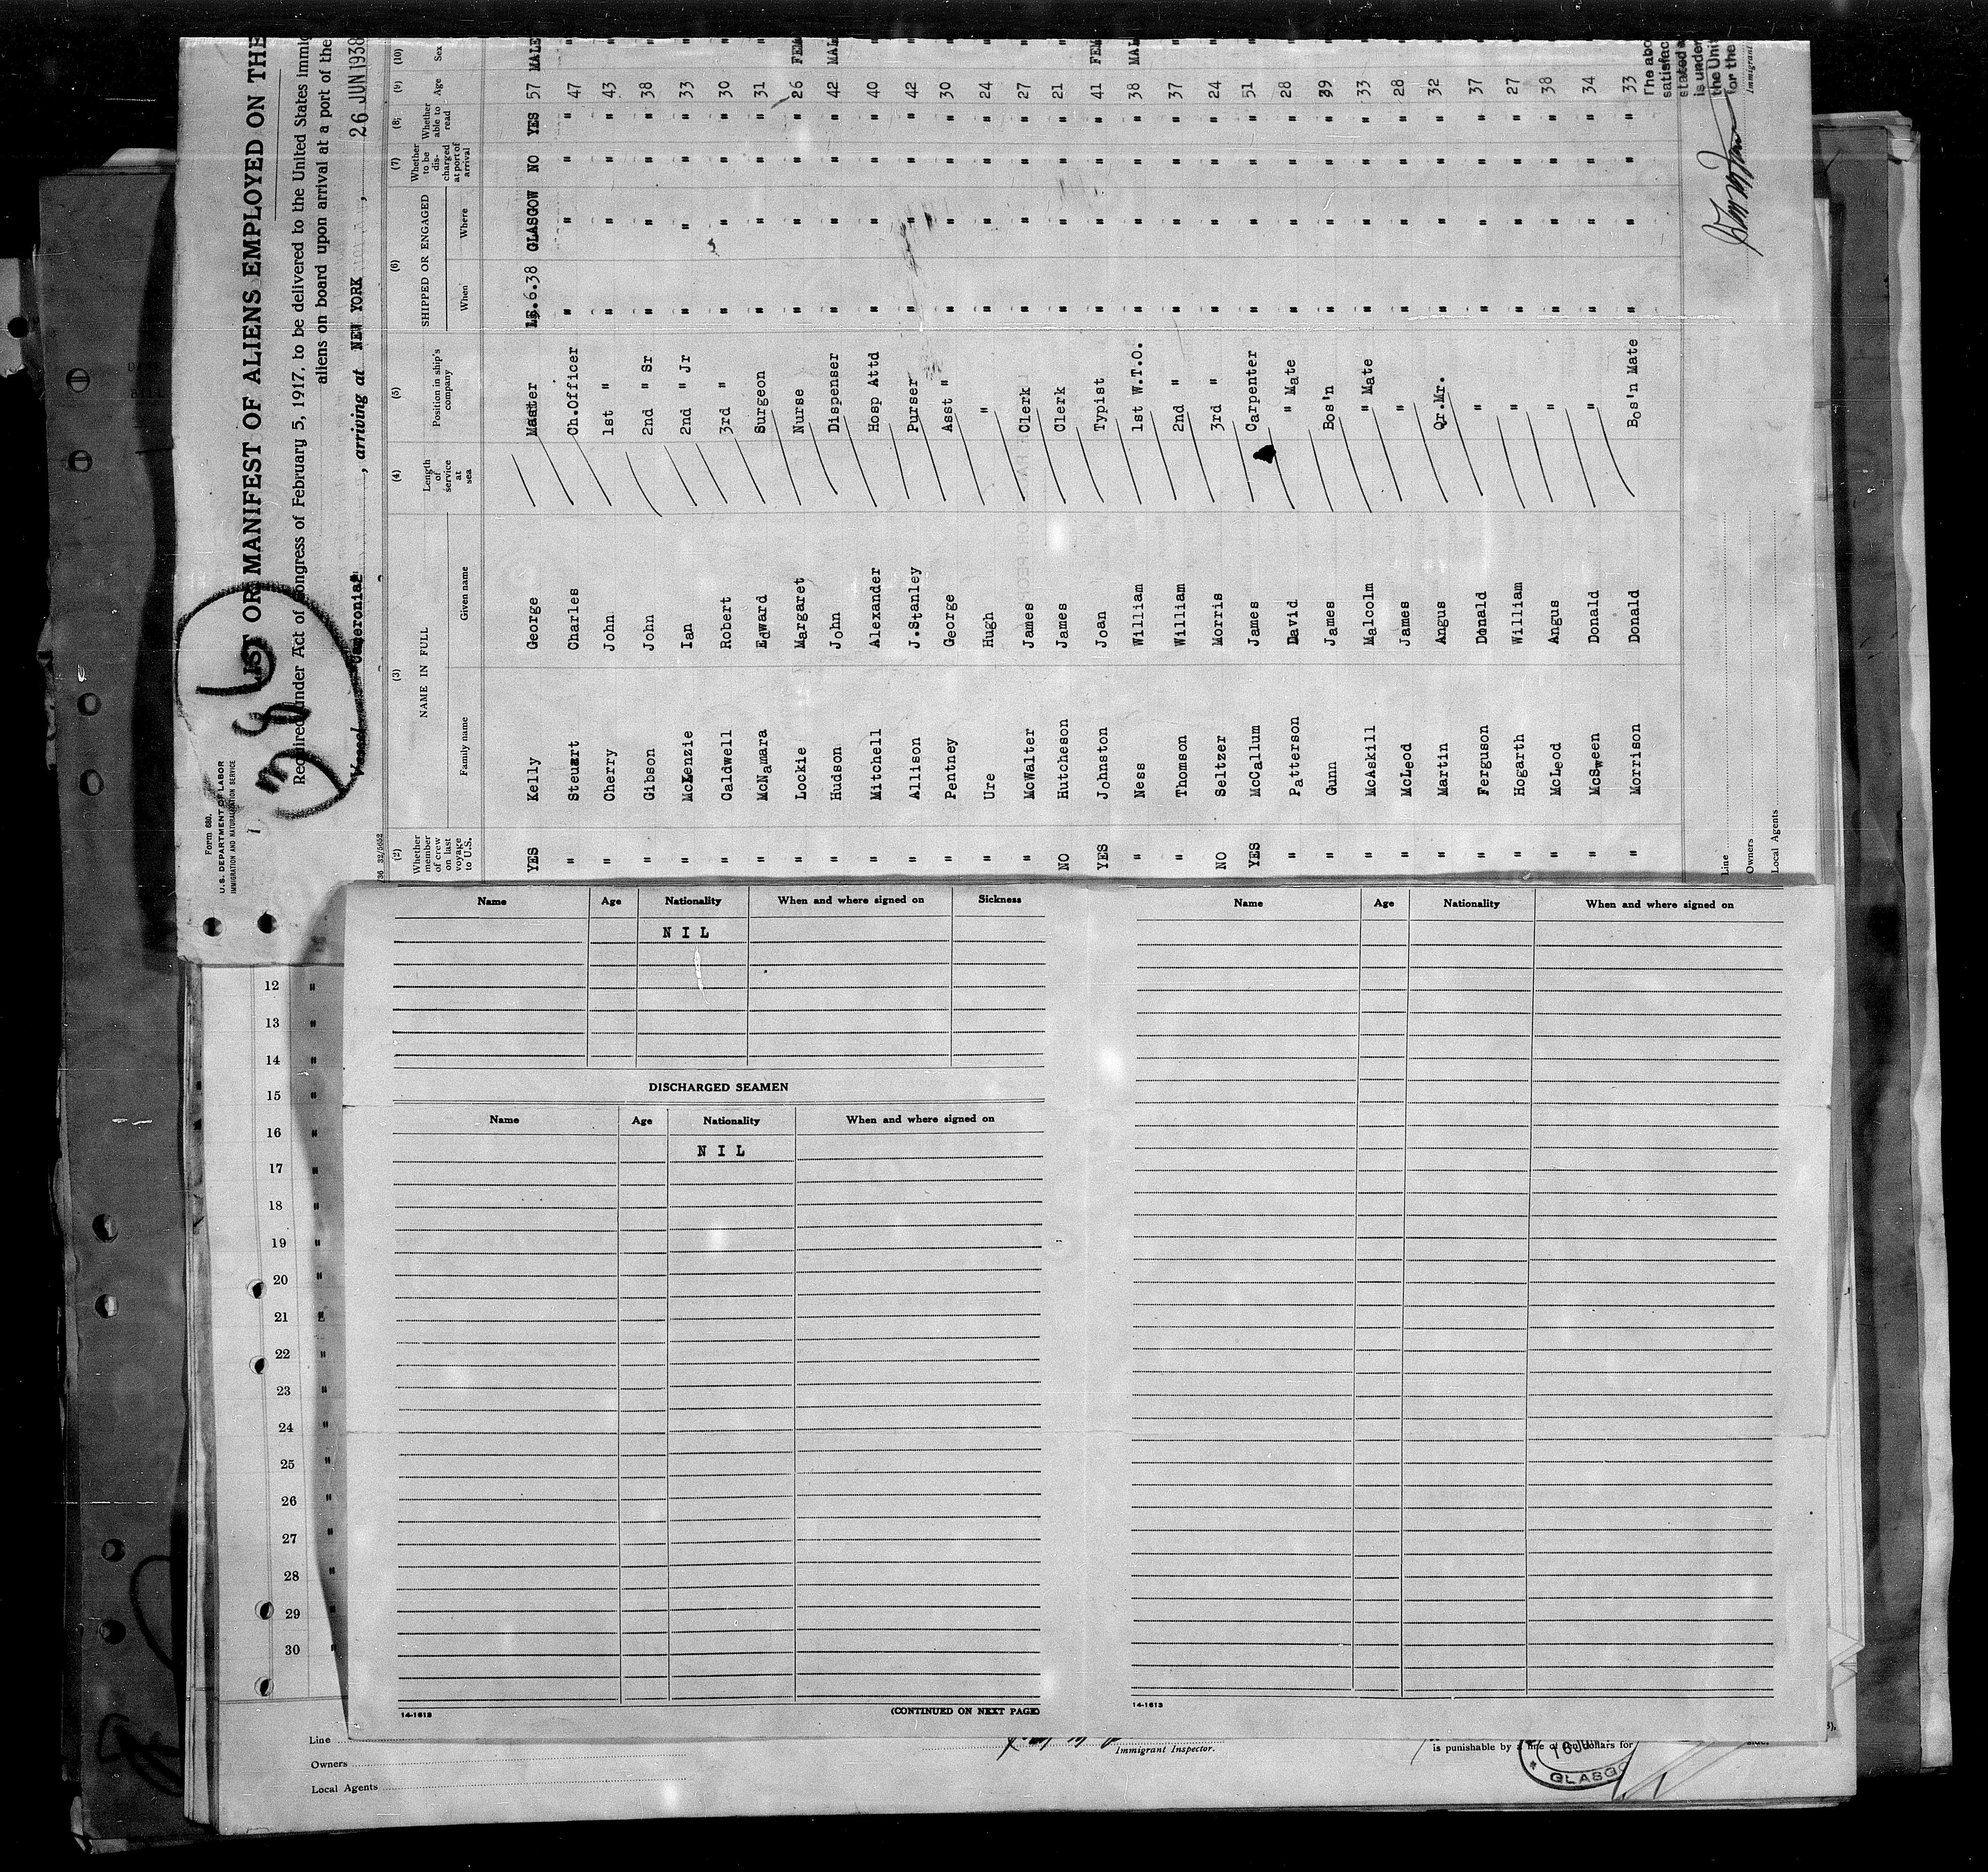 Form 680.
U.S. DEPARTMENT OF LABOR
IMMIGRATION AND NATURALIZATION SERVICE
386
LIST OR MANIFEST OF ALIENS EMPLOYED ON THE
Required under Act of Congress of February 5, 1917, to be delivered to the United States immig
aliens on board upon arrival at a port of the
Vessel Cameronia, arriving at NEW YORK, 26 JUN 1938
(2) (3) (4) (5) (6) (7) (8) (9) (10)
Whether member of crew on last voyage to U.S. NAME IN FULL Family name Given name Length of service at sea Position in ship's company SHIPPED OR ENGAGED When Where Whether to be discharged at port of arrival Whether able to read Age Sex
YES Kelly George Master .6.38 GLASGOW NO YES 57 MALE
" Steuart Charles Ch.Officer " " " " 47 "
" Cherry John 1st " " " " " 43 "
" Gibson John 2nd " Sr " " " " 38 "
" McLenzie Ian 2nd " Jr " " " " 33 "
" Caldwell Robert 3rd " " " " " 30 "
" McNamara Edward Surgeon " " " " 31 "
" Lockie Margaret Nurse " " " " 26 FEM
" Hudson John Dispenser " " " " 42 MAL
" Mitchell Alexander Hosp Attd " " " " 40 "
" Allison J.Stanley Purser " " " " 42 "
" Pentney George Asst " " " " " 30 "
" Ure Hugh " " " " " 24 "
" McWalter James Clerk " " " " 27 "
NO Hutcheson James Clerk " " " " 21 "
YES Johnston Joan Typist " " " " 41 FEM
" Ness William 1st W.T.O. " " " " 38 MAL
" Thomson William 2nd " " " " " 37 "
NO Seltzer Morris 3rd " " " " " 24 "
YES McCallum James Carpenter " " " " 51 "
" Patterson David " Mate " " " " 28 "
" Gunn James Bos'n " " " " 39 "
" McAskill Malcolm " Mate " " " " 33 "
" McLeod James " " " " " 28 "
" Martin Angus Qr.Mr. " " " " 32 "
" Ferguson Donald " " " " " 37 "
" Hogarth William " " " " " 27 "
" McLeod Angus " " " " " 38 "
" McSween Donald " " " " " 34 "
" Morrison Donald Bos'n Mate " " " " 33 "
Line
Owners
Local Agents
The abo
satisfac
stated
is under
the Unit
for the
Immigrant
Name Age Nationality When and where signed on Sickness
N I L
DISCHARGED SEAMEN
Name Age Nationality When and where signed on
N I L
14-1613 (CONTINUED ON NEXT PAGE)
Name Age Nationality When and where signed on
14-1613
12 "
13 "
14 "
15 "
16 "
17 "
18 "
19 "
20 "
21 "
22 "
23 "
24 "
25 "
26 "
27 "
28 "
29 "
30 "
Line
Owners
Local Agents
Immigrant Inspector.
is punishable by a fine of ten dollars for
GLASGO